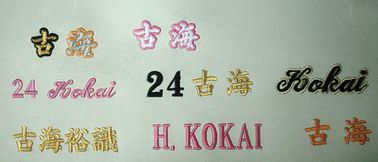 古海 古海
24 Kokai 24 古海 Kokai
古海裕識 H. KOKAI 古海